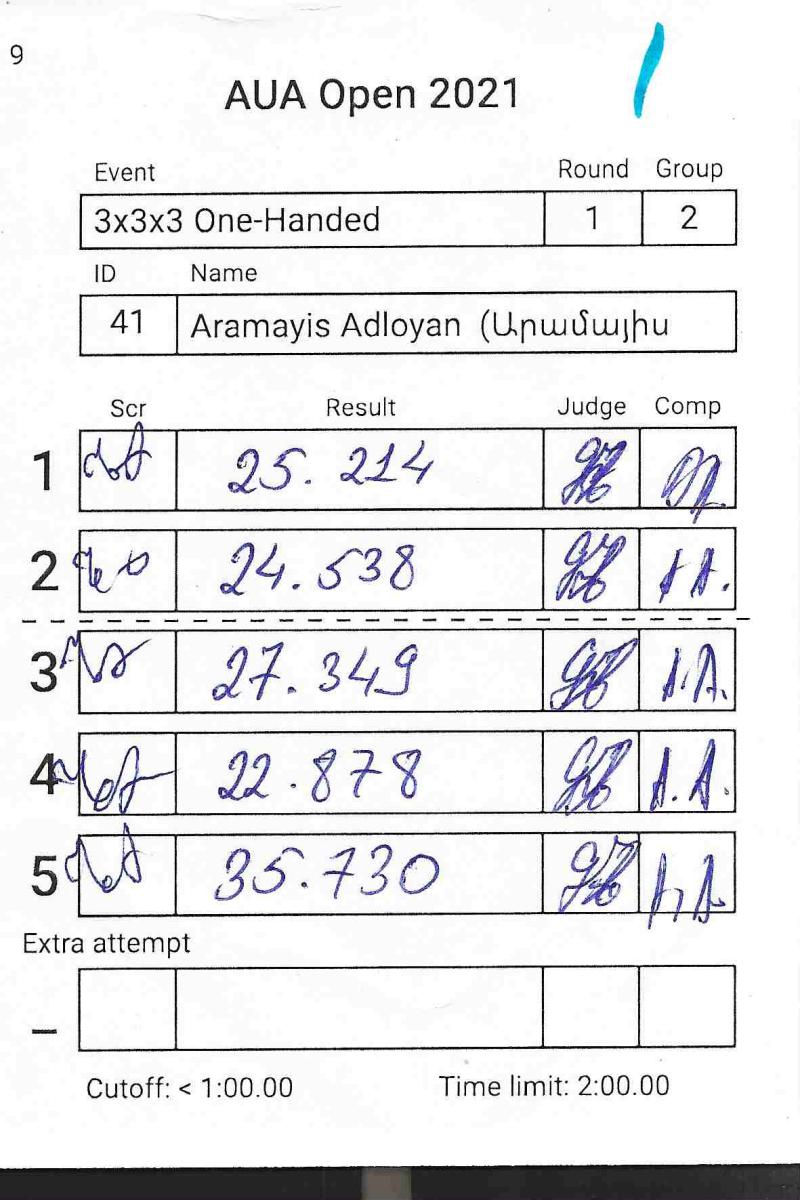 9
AUA Open 2021
Event Round Group
3x3x3 One-Handed 1 2
ID Name
41 Aramayis Adloyan (Արամայիս
Scr Result Judge Comp
1 25.214
2 24.538
3 27.349 A.A.
4 22.878 A.A.
5 35.730
Extra attempt
–
Cutoff: < 1:00.00 Time limit: 2:00.00